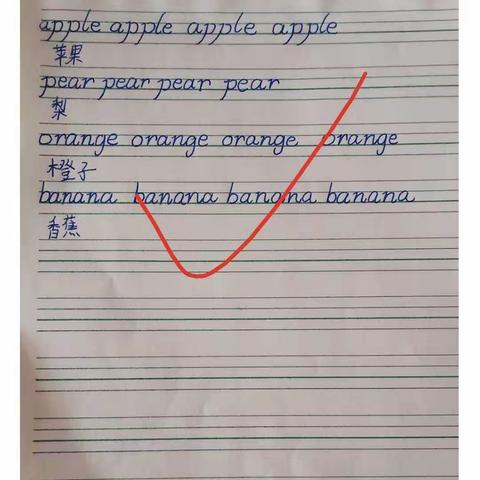 apple apple apple apple
苹果
pear pear pear pear
梨
orange orange orange orange
橙子
banana banana banana banana
香蕉